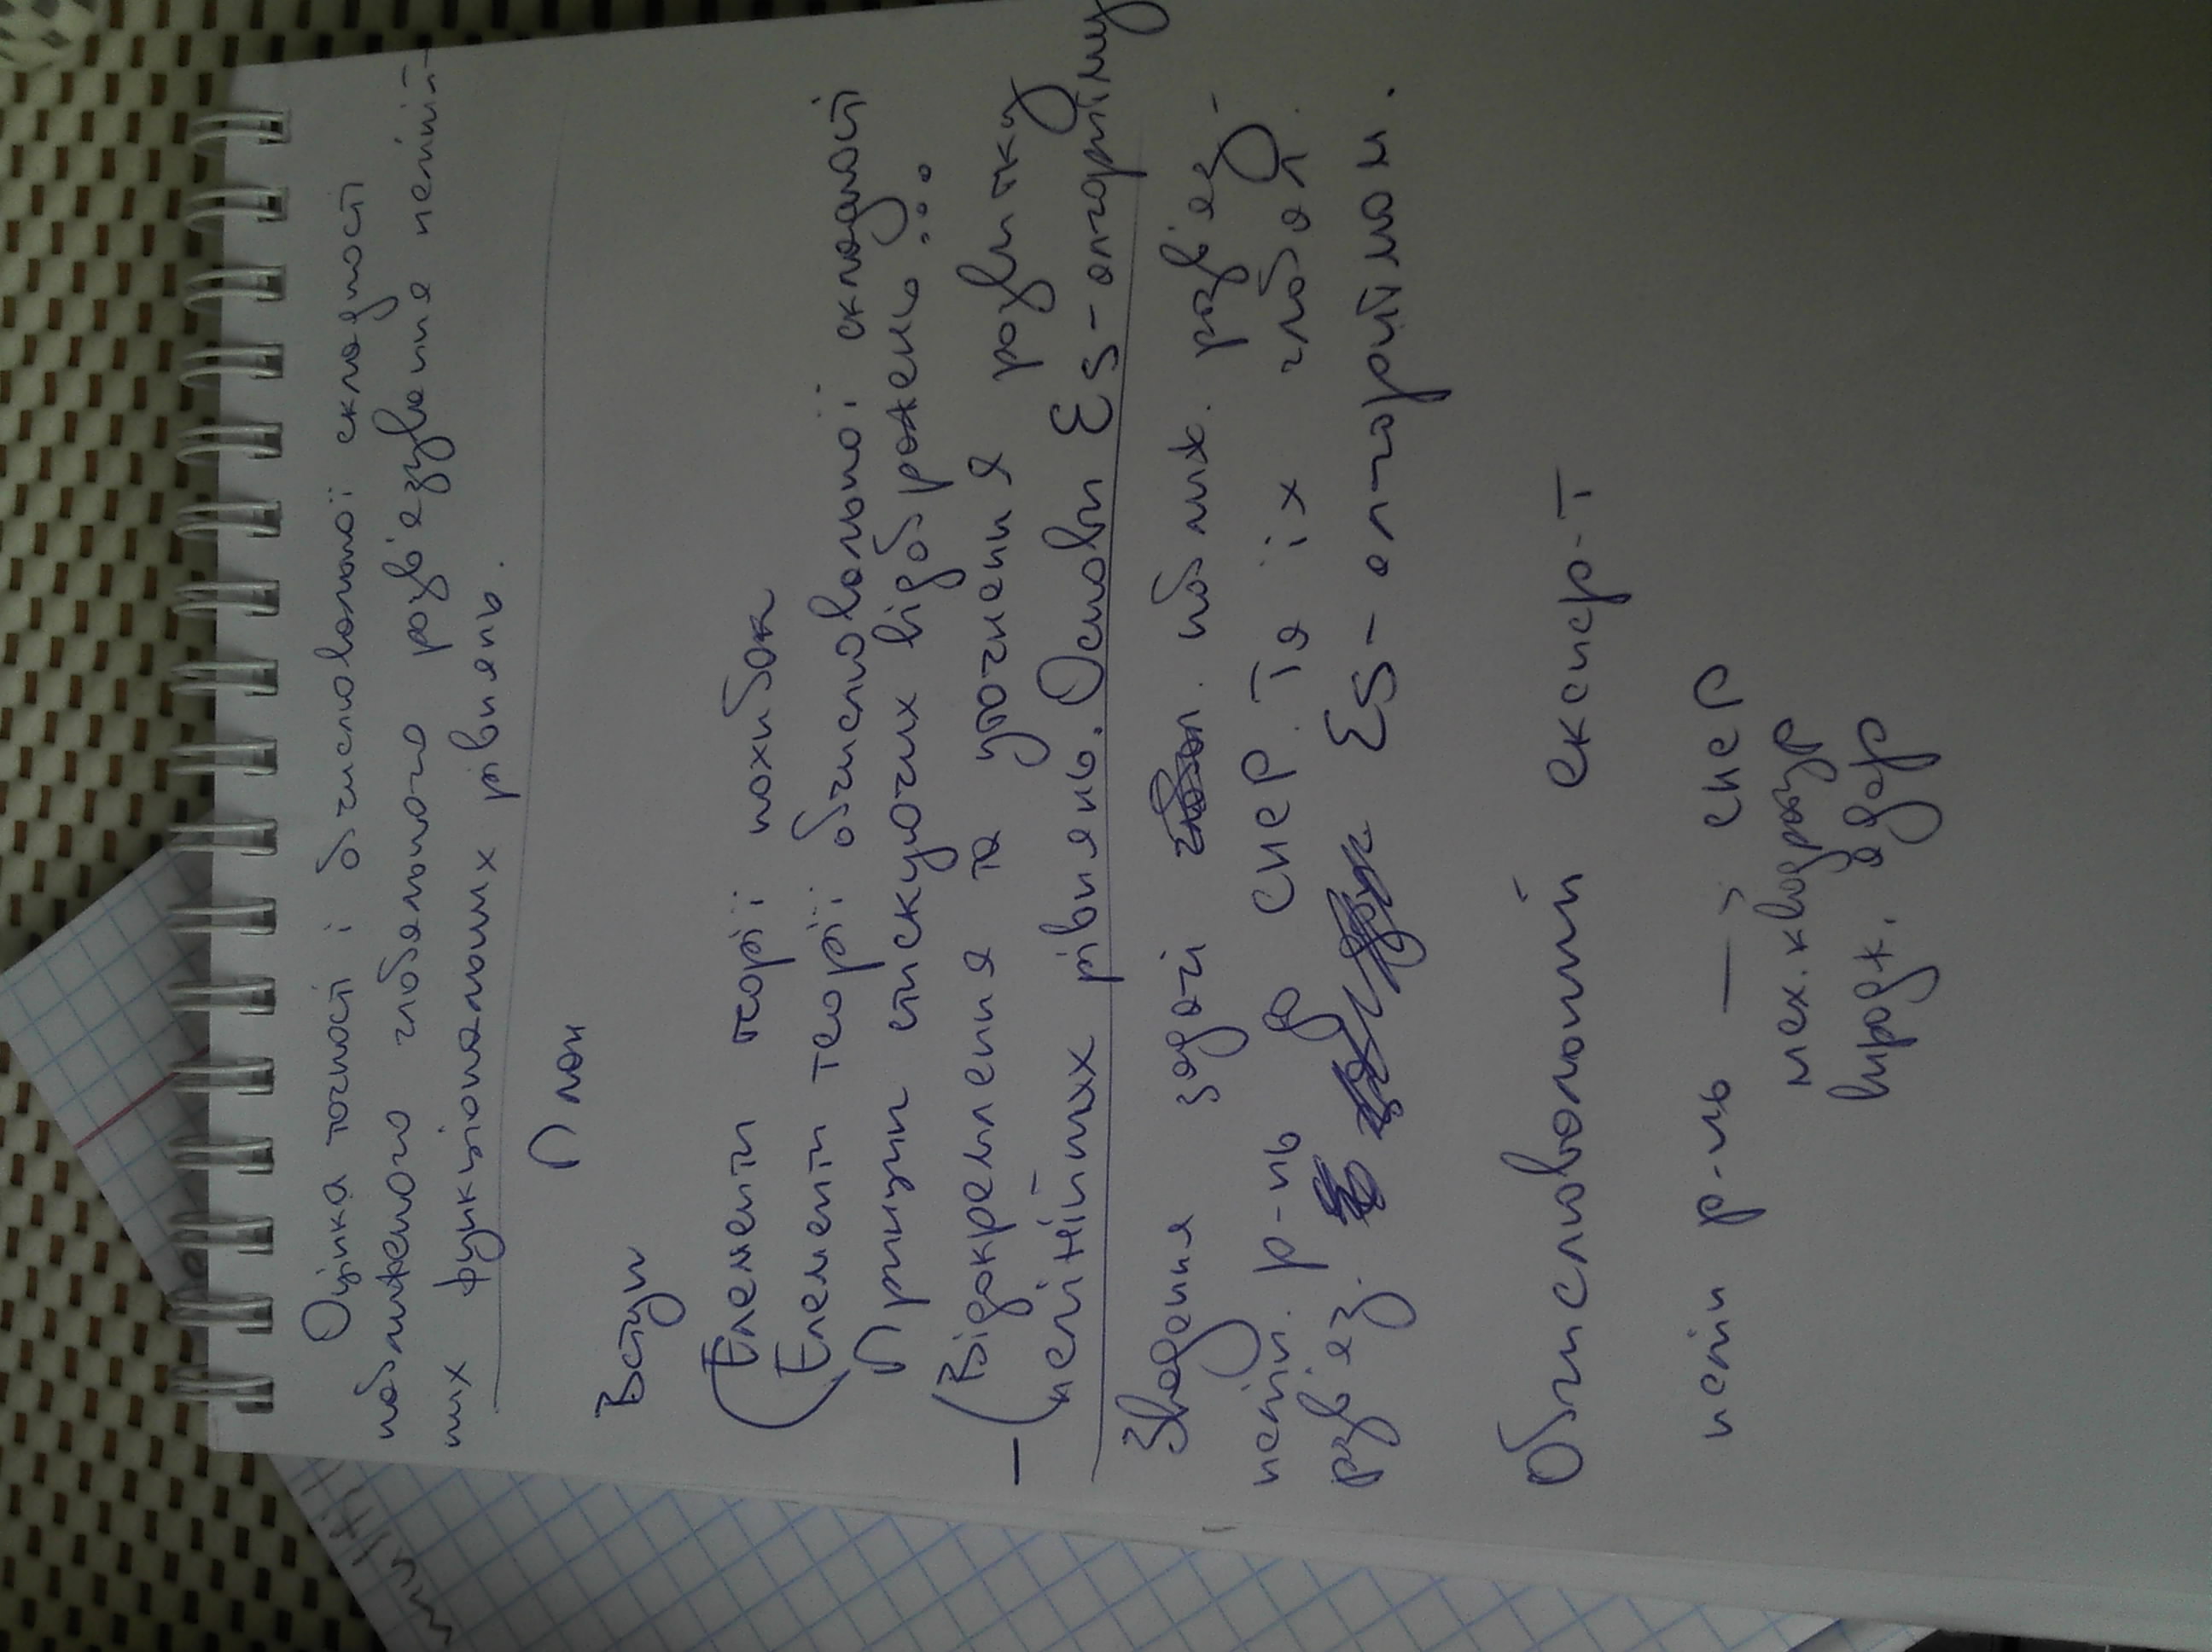 multi
Оцінка точності і обчислювальної складності
наближеного глобального розв'язування неліній-
них функціональних рівнянь.
План
Вступ
Елементи теорії похибок
Елементи теорії обчислювальної складності
Принцип стискуючих відображень...
– Відокремлення та уточнення розвитку
нелінійних рівнянь. Основи Es-алгоритму
Зведення задачі наближ. розв'яз-
нелін. р-нь до СНЕР. Та їх глобал.
розв'яз. Es-алгоритмом.
Обчислювальний експер-т
нелін р-нь —> СНЕР
мех. квадратур
виродж. ядер